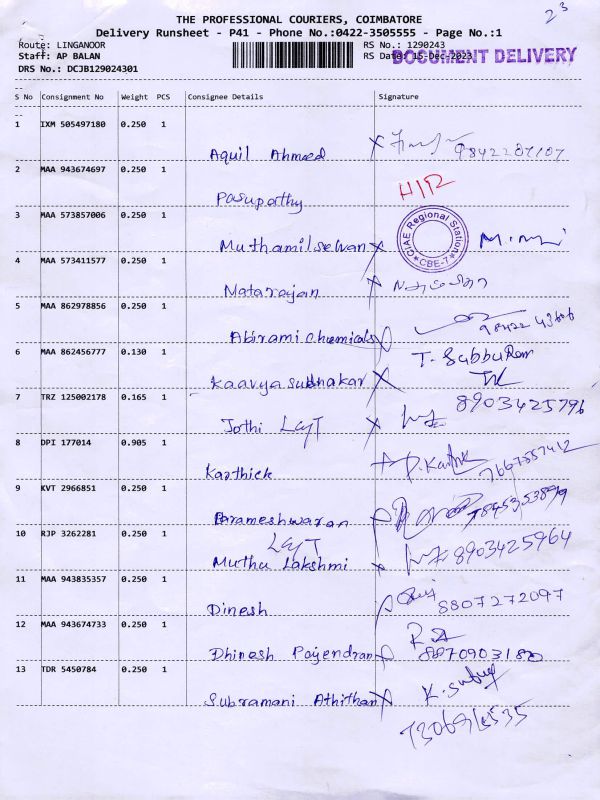 23
THE PROFESSIONAL COURIERS, COIMBATORE
Delivery Runsheet - P41 - Phone No.:0422-3505555 - Page No.:1
Route: LINGANOOR RS No.: 1290243
Staff: AP BALAN RS Date: 15-Dec-2023 DOCUMENT DELIVERY
DRS No.: DCJB129024301
S No Consignment No Weight PCS Consignee Details Signature
1 IXM 505497180 0.250 1
Aquil Ahmed 9842207107
2 MAA 943674697 0.250 1
Pasuparthy H/R
3 MAA 573857006 0.250 1
CIAE Regional Station CBE-7
Muthamilselvan
4 MAA 573411577 0.250 1
Natarajan
5 MAA 862978856 0.250 1
Abirami chemicals 98422 43606
6 MAA 862456777 0.130 1
T. Subbu Ram
Kaavya sudhakar
7 TRZ 125002178 0.165 1 8903425796
Jothi
8 DPI 177014 0.905 1
Karthick P. Karthik 7667857412
9 KVT 2966851 0.250 1
Parameshwaran
10 RJP 3262281 0.250 1
Muthu Lakshmi 8903425964
11 MAA 943835357 0.250 1
Dinesh 8807272097
12 MAA 943674733 0.250 1
Dhinesh Rajendran 8870903180
13 TDR 5450784 0.250 1
Subramani Athithan